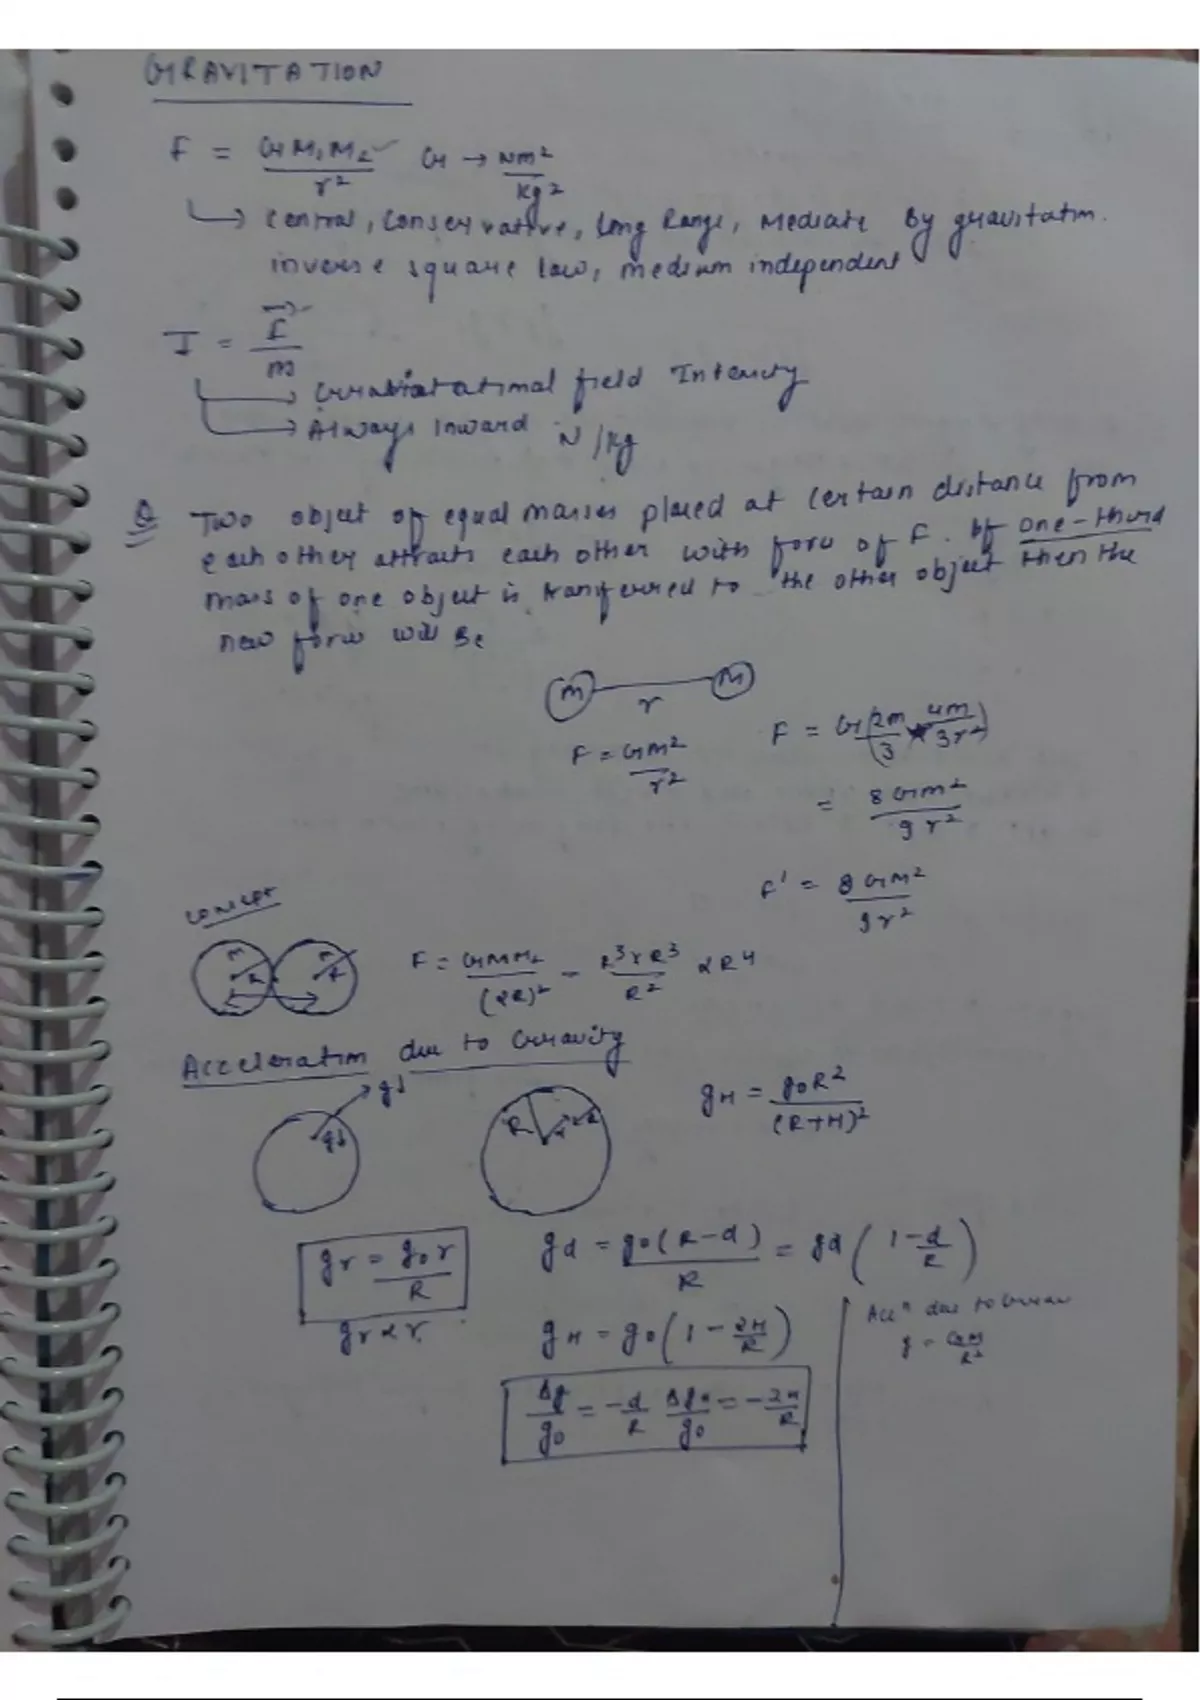 GRAVITATION
F = GM₁M₂/r² G → Nm²/kg²
→ Central, Conservative, Long Range, Mediate By gravitatm.
inverse square law, medium independent
I = F/m
→ Gravitatatimal field Intensity
→ Always Inward N/kg
Q Two object of equal masses placed at certain distance from
each other attracts each other with force of F. If one-third
mass of one object is transferred to the other object then the
new force will be
m r m
F = Gm²/r² F = G(2m/3 × 4m/3r²)
= 8Gm²/9r²
F' = 8Gm²/9r²
CONCEPT
F = GMM₂/(2R)² = R³×R³/R² ∝ R⁴
Acceleratim due to Gravity
gH = g₀R²/(R+H)²
gr = g₀r/R gd = g₀(R-d)/R = gd(1-d/R)
gr ∝ r gH = g₀(1-2H/R)
Δg/g₀ = -d/R ΔgH/g₀ = -2H/R
Accⁿ due to
g = GM/R²